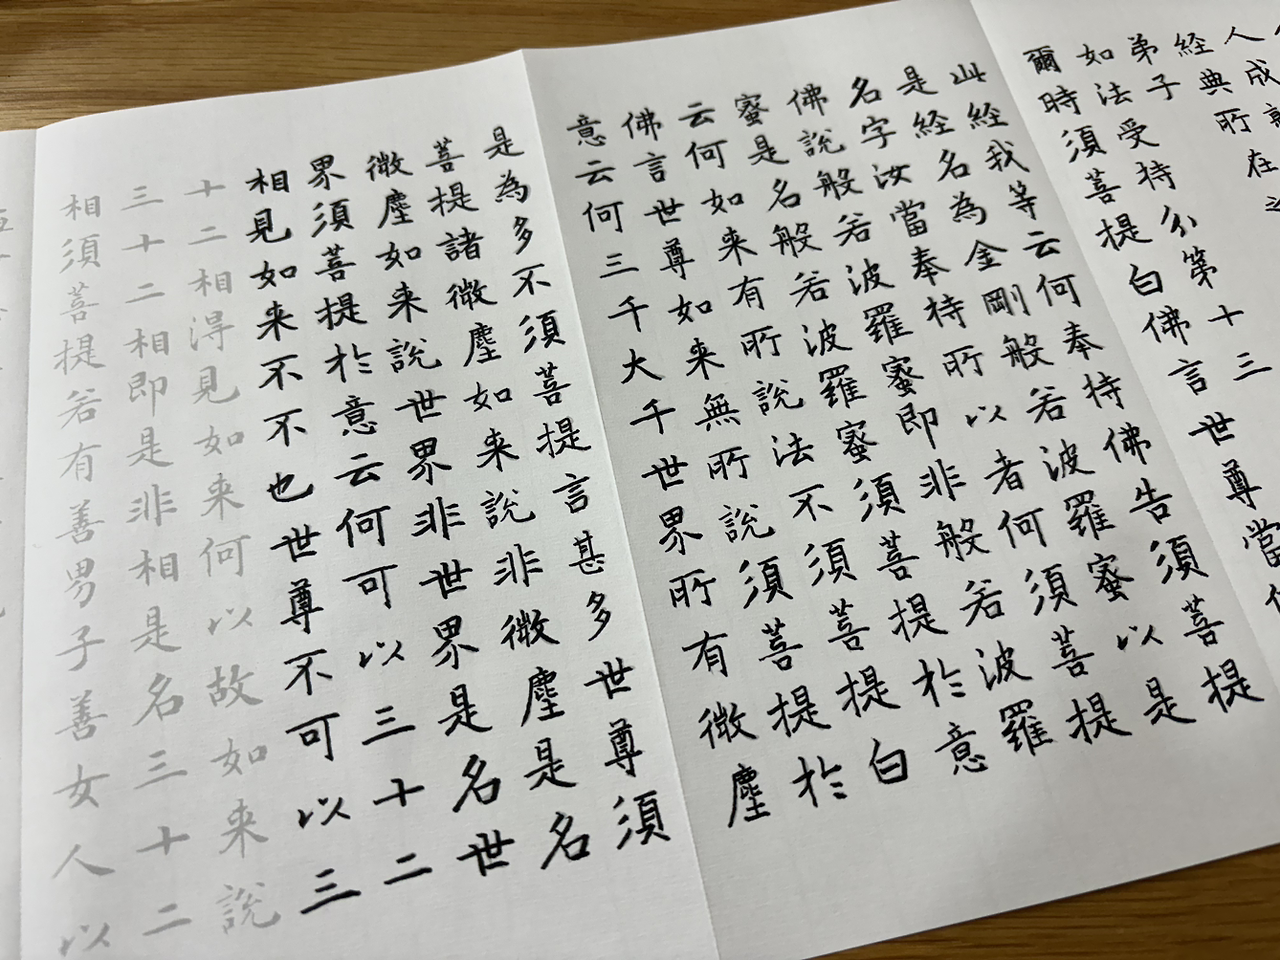 人成就
經典所在之
弟子
如法受持分第十三
爾時須菩提白佛言世尊當何
此經我等云何奉持佛告須菩提
是經名為金剛般若波羅蜜以是
名字汝當奉持所以者何須菩提
佛說般若波羅蜜即非般若波羅
蜜是名般若波羅蜜須菩提於意
云何如来有所說法不須菩提白
佛言世尊如来無所說須菩提於
意云何三千大千世界所有微塵
是為多不須菩提言甚多世尊須
菩提諸微塵如来說非微塵是名
微塵如来說世界非世界是名世
界須菩提於意云何可以三十二
相見如来不不也世尊不可以三
十二相得見如来何以故如来說
三十二相即是非相是名三十二
相須菩提若有善男子善女人以